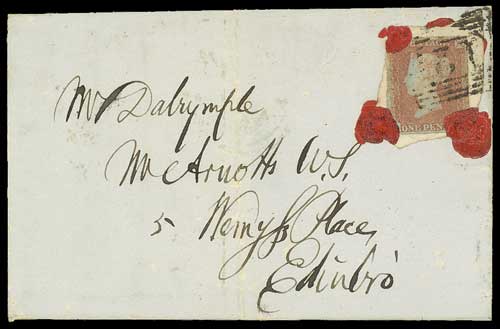 ONE PEN
Mr Dalrymple
Mr Arnotts W.S.
5 Wemyss Place,
Edinbro